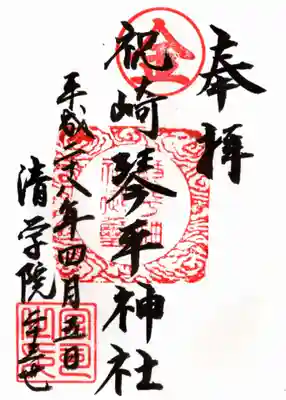 奉拝
祝崎琴平神社
平成二十八年四月五日
清学院
金